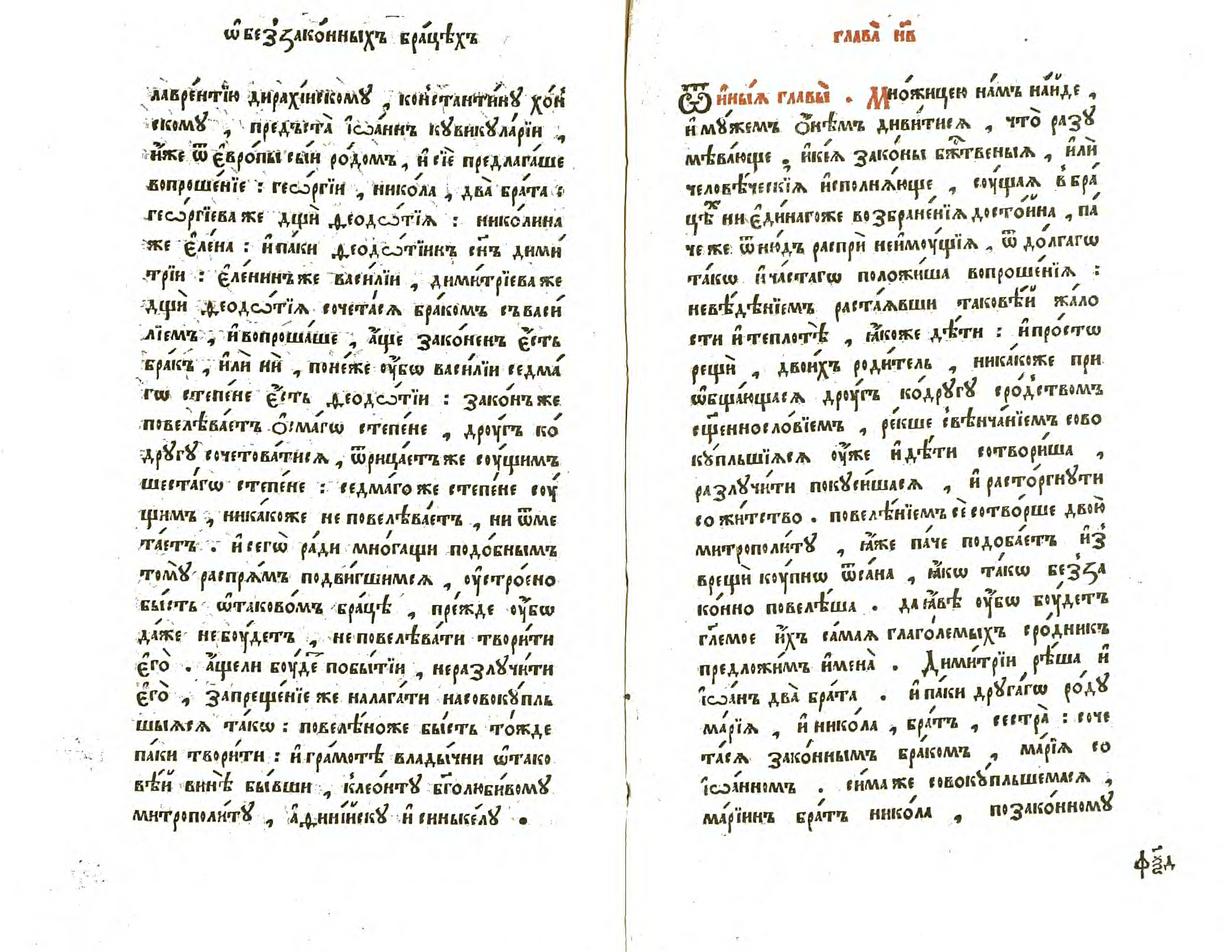 ѡ҆ беззако́нныхъ бра́цѣхъ
лавре́нтїю дирахі́искому , ко́нстантину хо́н
скому , предъста̀ і҆ѡа́ннъ кувикула́рїи ,
и҆́же ѿ є҆вро́пы сы́и ро́домъ , и҆ сїѐ предлага́ше
вопроше́нїе : гео́ргїи , нико́ла , два̀ бра́та :
гео́ргїева же дщѝ ѳеодѡ́тїѧ : нико́лина
же є҆ле́на : и҆ па́ки ѳеодѡ́тїинъ сн҃ъ дими́
трїи : є҆ле́нинъ же васи́лїи , дими́трїева же
дщѝ ѳеодѡ́тїѧ сочета́сѧ бра́комъ съ васи́
лїемъ , и҆ вопроша́ше , а҆́ще зако́ненъ є҆́сть
бра́къ , и҆лѝ нѝ , поне́же ᲂу҆́бѡ васи́лїи седма́
гѡ степе́не є҆́сть ѳеодѡ́тїи : зако́нъ же
повелѣва́етъ о҆сма́гѡ степе́не , дрꙋ́гъ ко
дрꙋ́гꙋ сочетова́тисѧ , ѿрица́етъ же сꙋ́щимъ
шеста́гѡ степе́не : седма́го же степе́не сꙋ́
щимъ , ника́коже не повелѣва́етъ , ни ѿме
та́етъ . и҆ сегѡ̀ ра́ди мно́гащи подо́бнымъ
томꙋ̀ распрѧ́мъ подви́гшимсѧ , ᲂу҆стро́ено
бы́сть ѡ҆ таково́мъ бра́цѣ , пре́жде ᲂу҆́бѡ
да́же не бꙋ́детъ , не повелѣва́ти твори́ти
є҆го̀ . а҆́ще ли бꙋ́де по бытїѝ , не разлꙋчи́ти
є҆го̀ , запреще́нїе же налага́ти на совокꙋ́пль
шыѧсѧ та́кѡ : повелѣ́но же бы́сть то́жде
па́ки твори́ти : и҆ гра́мотѣ влады́чни ѡ҆ тако
вѣ́и винѣ̀ бы́вши , клео́нтꙋ бг҃олюби́вомꙋ
митрополи́тꙋ , а҆ѳини́искꙋ и҆ синьке́лꙋ .
глава̀ н҃в
Ѿ и҆ны́ѧ главы̀ . Мно́жицею на́мъ на́йде ,
и҆ мꙋ́жемъ о҆́нѣмъ диви́тисѧ , что̀ разꙋ
мѣва́юще , и҆ ки́ѧ зако́ны бж҃твеныѧ , и҆лѝ
человѣ́ческїѧ и҆сполнѧ́юще , сꙋ́щаѧ в бра́
цѣⷯ ни є҆ди́нагоже возбране́нїѧ досто́йна , па́
че же ѿню́дъ распрѝ не и҆мꙋ́щїѧ , ѿ до́лгагѡ
та́кѡ и҆ ча́стагѡ положи́ша вопроше́нїѧ :
невѣ́дѣнїемъ раста́ѧвши таковѣ́й жа́ло
сти и҆ теплотѣ̀ , ꙗ҆́коже дѣ́ти : и҆ про́стѡ
рещѝ , двои́хъ роди́тель , ника́коже при
ѡ҆бща́ющасѧ дрꙋ́гъ ко дрꙋ́гꙋ сро́дствомъ
сщ҃еннослові́емъ , ре́кше свѣнча́нїемъ сово
кꙋ́пльшїѧсѧ ᲂу҆́же и҆ дѣ́ти сотвори́ша ,
разлꙋчи́ти покꙋси́шасѧ , и҆ расто́ргнꙋти
сожи́тство . повелѣ́нїемъ сѐ сотво́рше двою̀
митрополи́тꙋ , ꙗ҆́же па́че подоба́етъ и҆з
врещѝ кꙋ́пнѡ ѿ са́на , ꙗ҆́кѡ та́кѡ безза
ко́нно повелѣ́ша . да ꙗ҆́вѣ ᲂу҆́бѡ бꙋ́детъ
гл҃емое и҆́хъ са́маѧ глаго́лемыхъ сро́дникъ
предложи́мъ и҆мена̀ . Дими́трїи рѣ́ша и҆
і҆ѡа́нъ два̀ бра́та . и҆ па́ки дрꙋга́гѡ ро́дꙋ
марі́ѧ , и҆ нико́ла , бра́тъ , сестра̀ : соче
та́сѧ зако́ннымъ бра́комъ , марі́ѧ со
і҆ѡа́нномъ . си́ма же совокꙋ́пльшемасѧ ,
марі́инъ бра́тъ нико́ла , по зако́нномꙋ